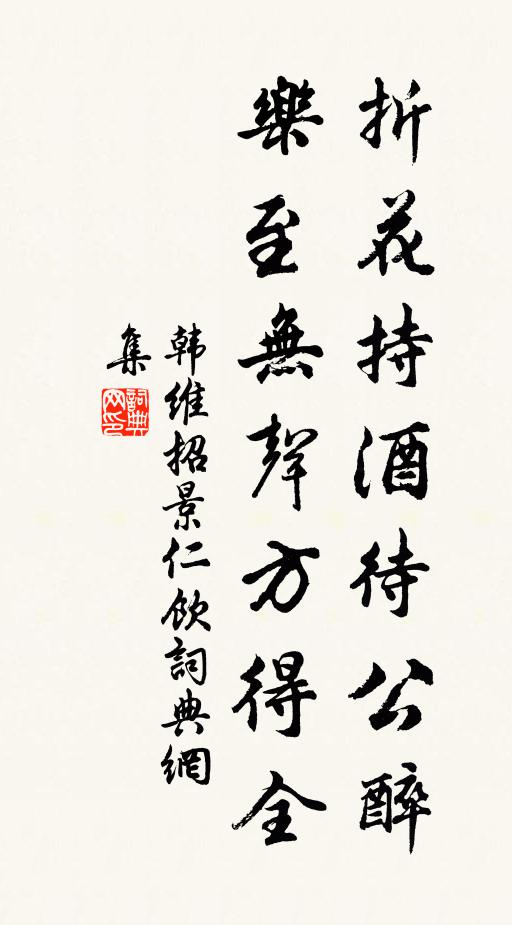 折花持酒待公醉
樂至無聲方得全
韩維招景仁飲詞典網
集
詞典网印